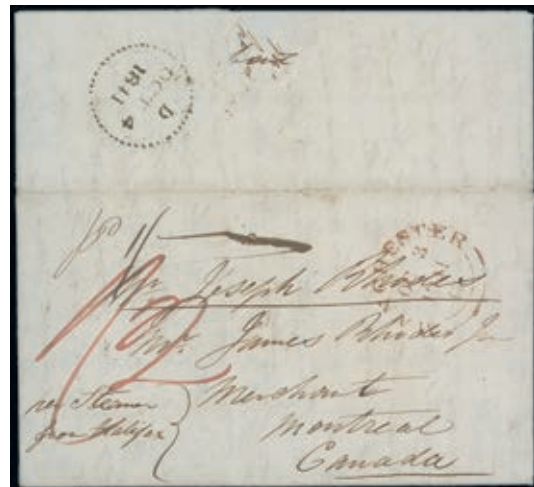 D
OCT 4
1841
pd 1/
ESTER
Mr Joseph Rhodes
Mr. James Rhodes Jr
Merchant
Montreal
Canada
per Steamer
from Halifax
1/2